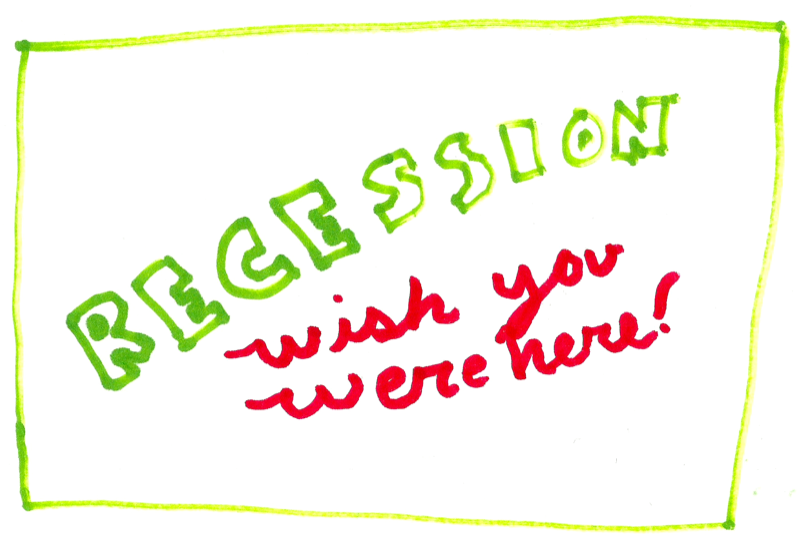 RECESSION
wish you
were here!